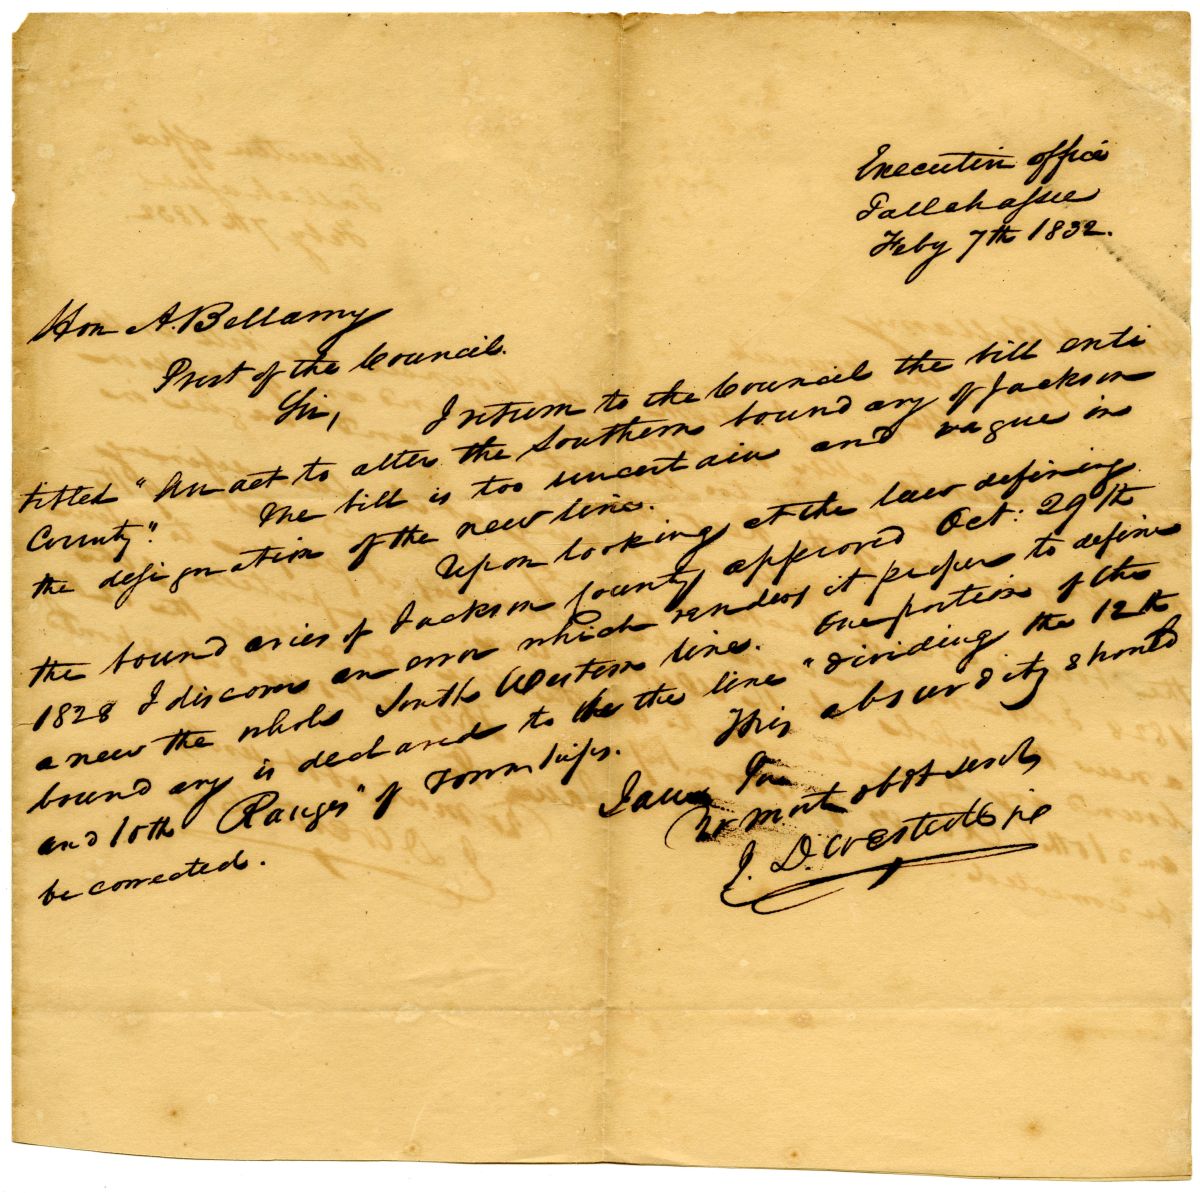 Executive office
Tallahassee
Feby 7th 1832.
Hon A. Bellamy
Prest of the Council.
Sir, I return to the Council the bill enti
titled "An act to alter the Southern boundary of Jackson
County". The bill is too uncertain and vague in
the designation of the new line.
Upon looking at the law defining
the boundaries of Jackson County approved Oct: 29th
1828 I discover an error which renders it proper to define
anew the whole South Western line. One portion of the
boundary is declared to be the line "dividing the 12th
and 10th Ranges" of Townships. This absurdity should
be corrected.
I am Sir
Yr most obt servt
J. D. Westcott Jr